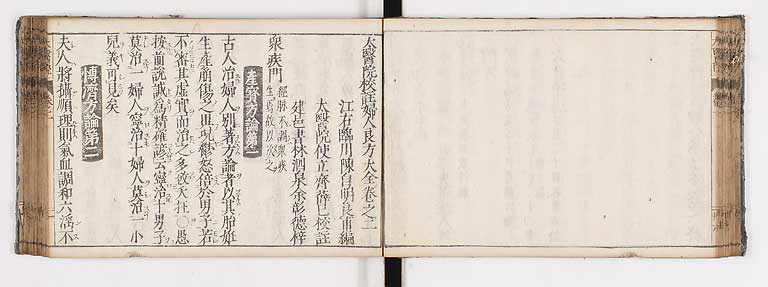 太醫院校註婦人良方大全卷之二
江右臨川陳自明良甫編
太醫院使立齊薛己校註
建邑書林泗泉余彰德梓
衆疾門
經脉不調衆疾
生焉故以次之
產寶方論第一
古人治婦人別著方論者以其胎姙
生產崩傷之異況鬱怒倍於男子若
不審其虛實而治之多致夭枉〇愚
按前說誠爲精確諺云寧治十男子
莫治一婦人寧治十婦人莫治一小
兒義可見矣
博濟方論第二
夫人將攝順理則氣血調和六滛不